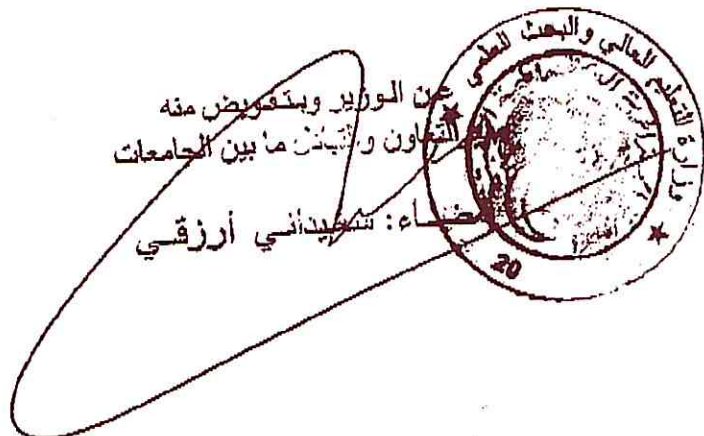 عن الوزير وبتفويض منه
التعاون والتبادل ما بين الجامعات
إمضاء: سعيداني أرزقي
وزارة التعليم العالي والبحث العلمي
20